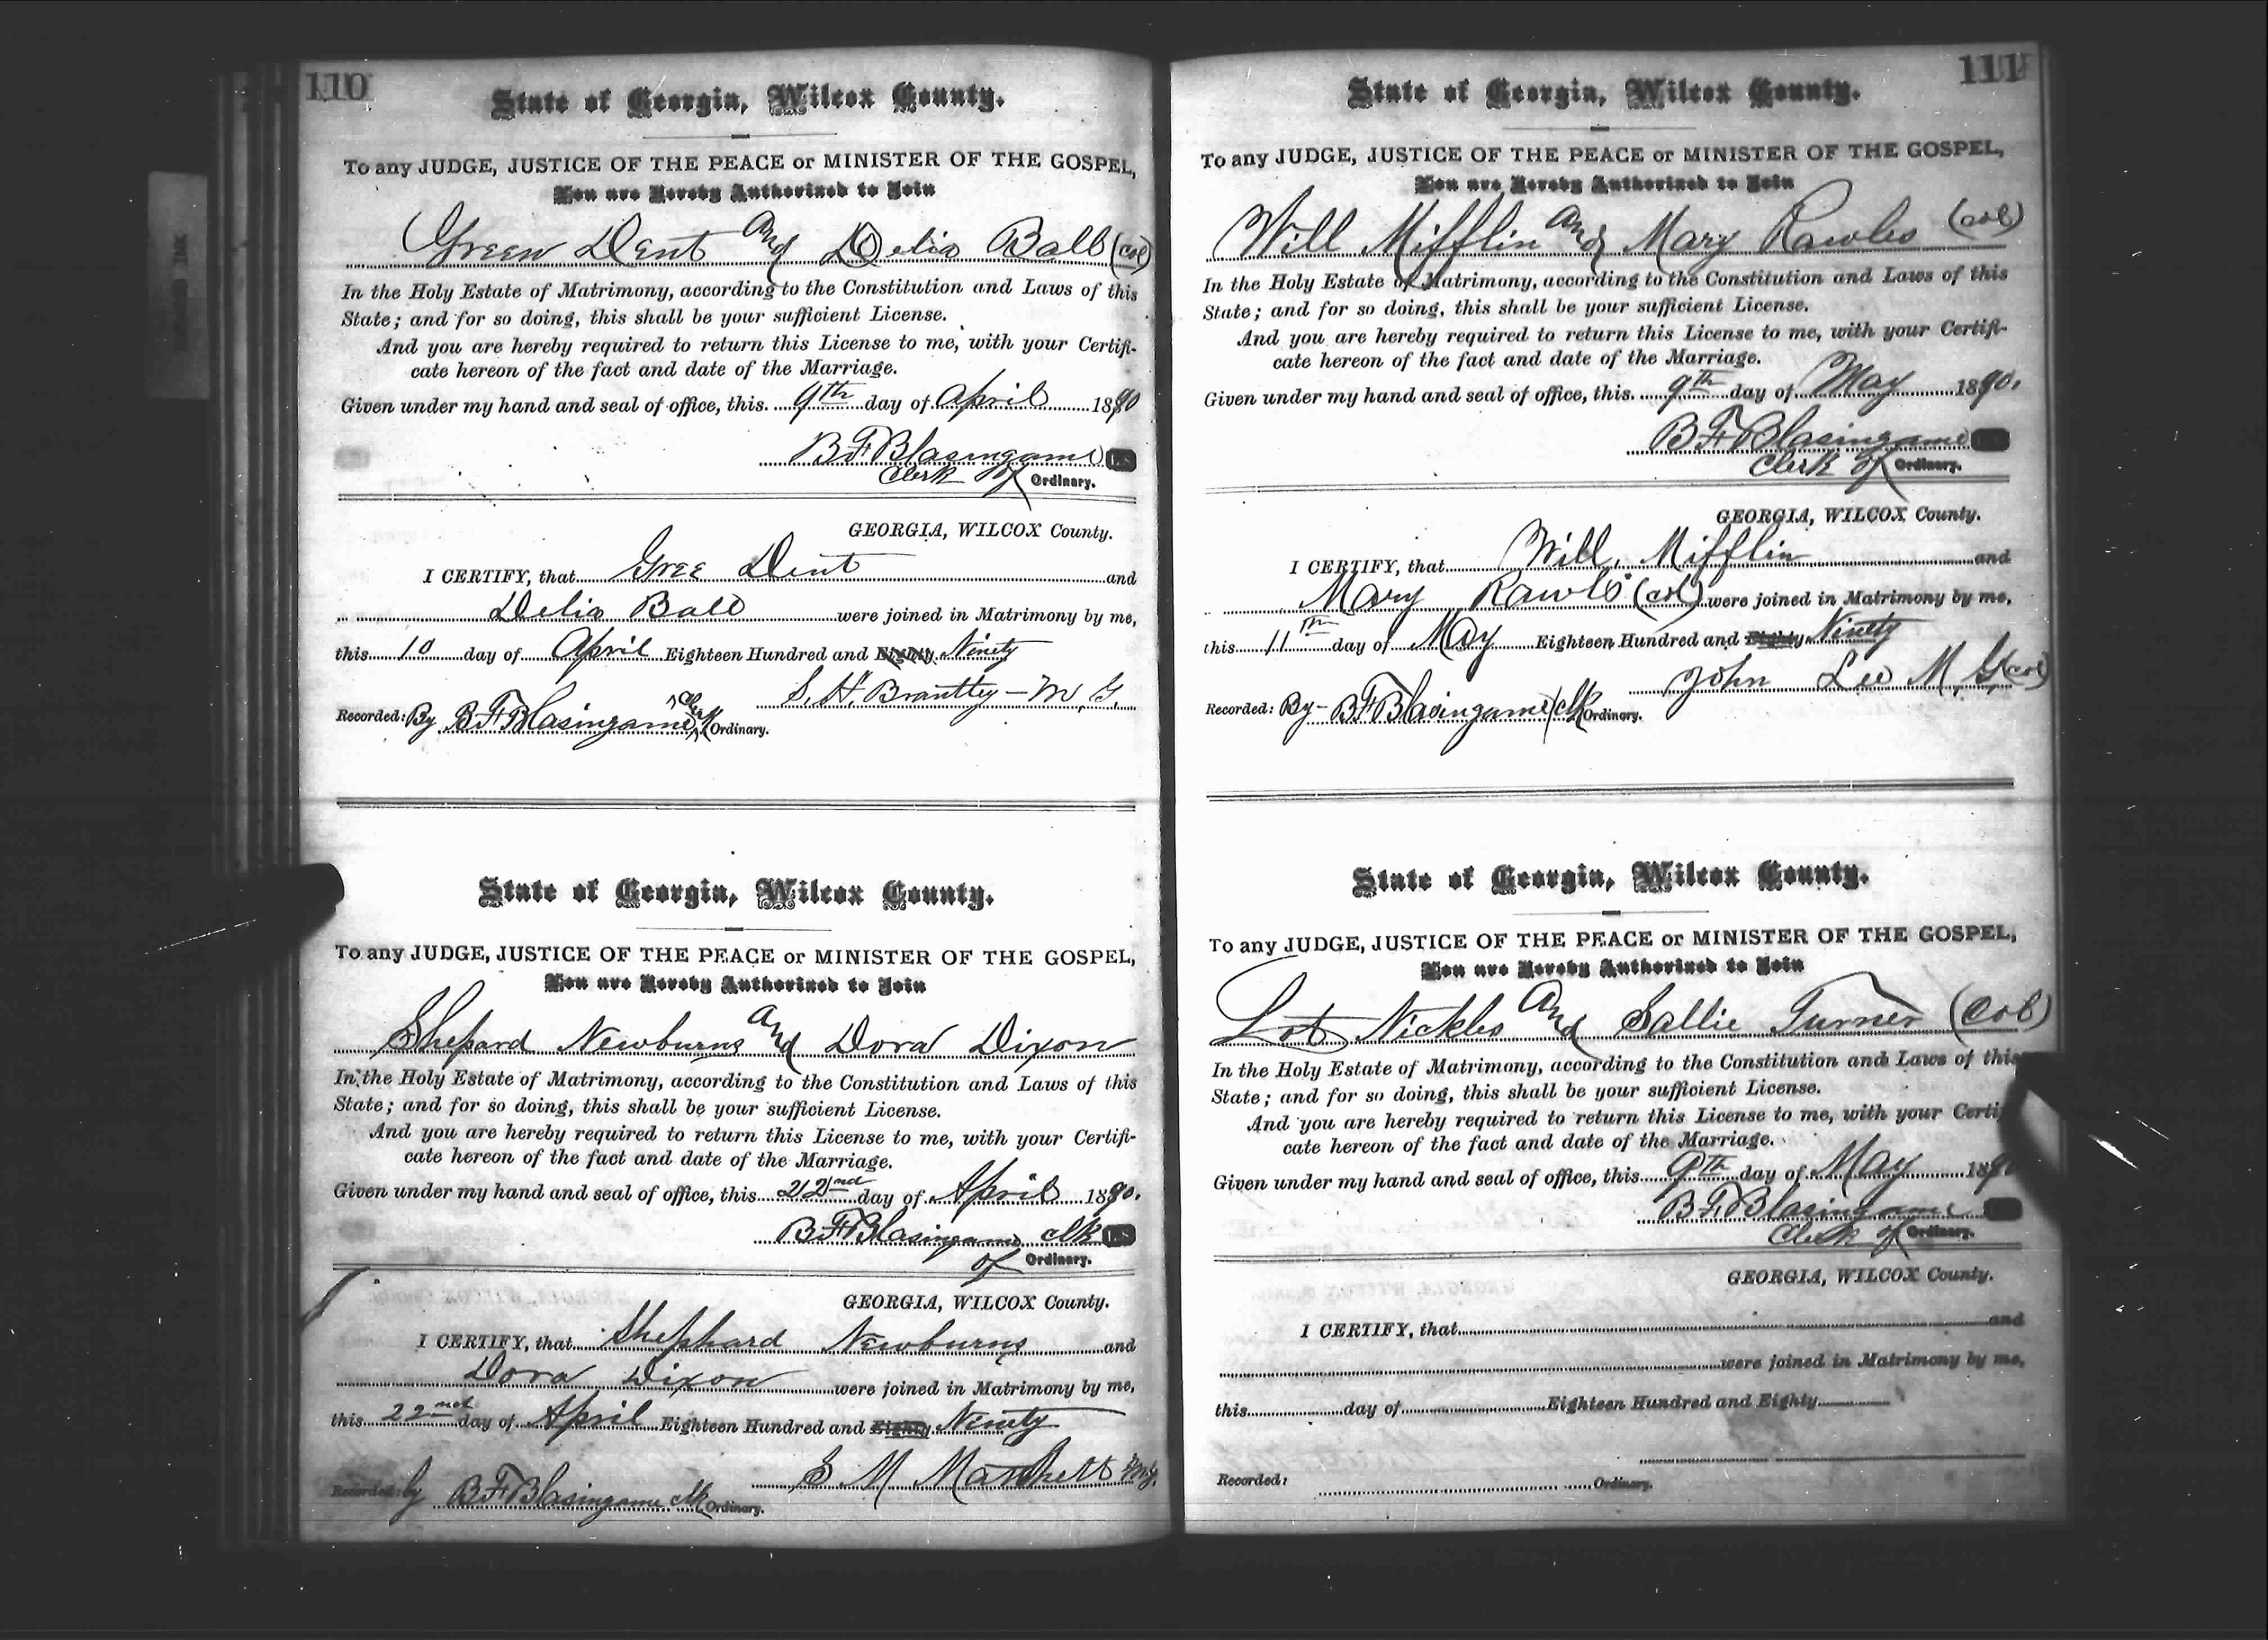 110
State of Georgia, Wilcox County.
To any JUDGE, JUSTICE OF THE PEACE or MINISTER OF THE GOSPEL,
You are Hereby Authorized to Join
Green Dent and Delia Ball (col)
In the Holy Estate of Matrimony, according to the Constitution and Laws of this
State; and for so doing, this shall be your sufficient License.
And you are hereby required to return this License to me, with your Certifi-
cate hereon of the fact and date of the Marriage.
Given under my hand and seal of office, this 9th day of April 1890
B F Blasingame LS
Clerk of Ordinary.
GEORGIA, WILCOX County.
I CERTIFY, that Gree Dent and
Delia Ball were joined in Matrimony by me,
this 10 day of April Eighteen Hundred and Eighty Ninety
S. H. Brantley - M. G.
Recorded: By B F Blasingame Clerk Ordinary.
State of Georgia, Wilcox County.
To any JUDGE, JUSTICE OF THE PEACE or MINISTER OF THE GOSPEL,
You are Hereby Authorized to Join
Shepard Newburns and Dora Dixon
In the Holy Estate of Matrimony, according to the Constitution and Laws of this
State; and for so doing, this shall be your sufficient License.
And you are hereby required to return this License to me, with your Certifi-
cate hereon of the fact and date of the Marriage.
Given under my hand and seal of office, this 22nd day of April 1890.
B F Blasingame clk LS
of Ordinary.
GEORGIA, WILCOX County.
I CERTIFY, that Shephard Newburns and
Dora Dixon were joined in Matrimony by me,
this 22nd day of April Eighteen Hundred and Eighty Ninety
S M
Recorded: by B F Blasingame clk Ordinary.
111
State of Georgia, Wilcox County.
To any JUDGE, JUSTICE OF THE PEACE or MINISTER OF THE GOSPEL,
You are Hereby Authorized to Join
Will Mifflin and Mary Rawles (col)
In the Holy Estate of Matrimony, according to the Constitution and Laws of this
State; and for so doing, this shall be your sufficient License.
And you are hereby required to return this License to me, with your Certifi-
cate hereon of the fact and date of the Marriage.
Given under my hand and seal of office, this 9th day of May 1890.
B F Blasingame
Clerk of Ordinary.
GEORGIA, WILCOX County.
I CERTIFY, that Will Mifflin and
Mary Rawls (col) were joined in Matrimony by me,
this 11th day of May Eighteen Hundred and Eighty Ninety
John Lee M. G (col)
Recorded: By - B F Blasingame clk Ordinary.
State of Georgia, Wilcox County.
To any JUDGE, JUSTICE OF THE PEACE or MINISTER OF THE GOSPEL,
You are Hereby Authorized to Join
Lot Nickles and Sallie Turner (Col)
In the Holy Estate of Matrimony, according to the Constitution and Laws of this
State; and for so doing, this shall be your sufficient License.
And you are hereby required to return this License to me, with your Certi
cate hereon of the fact and date of the Marriage.
Given under my hand and seal of office, this 9th day of May 189
B F. Blasingame
Clerk of Ordinary.
GEORGIA, WILCOX County.
I CERTIFY, that and
were joined in Matrimony by me,
this day of Eighteen Hundred and Eighty
Recorded: Ordinary.